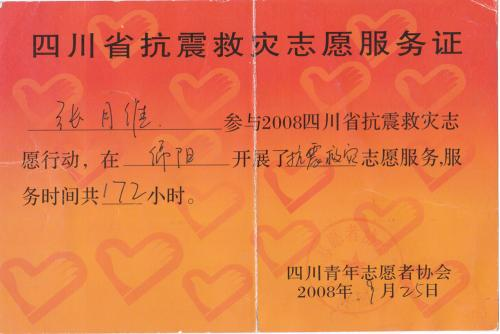 四川省抗震救灾志愿服务证
张月维 参与2008四川省抗震救灾志
愿行动，在 绵阳 开展了抗震救灾志愿服务,服
务时间共172小时。
四川青年志愿者协会
2008年 9月25日